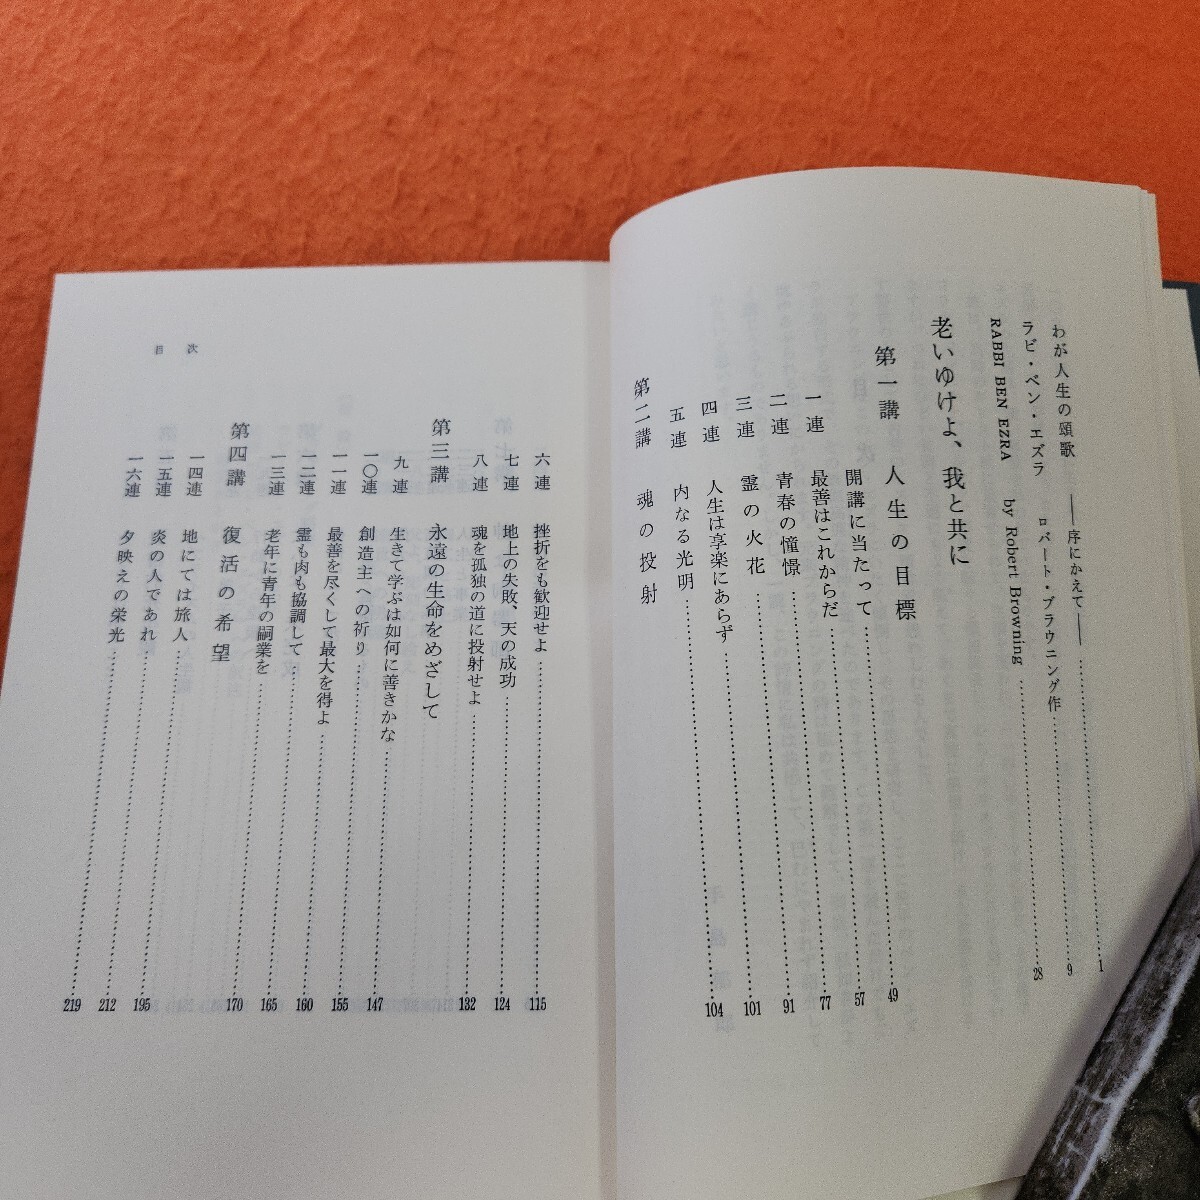 わが人生の頌歌 ——序にかえて——……1
ラビ・ベン・エズラ ロバート・ブラウニング作……9
RABBI BEN EZRA by Robert Browning……28
老いゆけよ、我と共に
第一講 人生の目標
開講に当たって……49
一連 最善はこれからだ……57
二連 青春の憧憬……77
三連 霊の火花……91
四連 人生は享楽にあらず……101
五連 内なる光明……104
第二講 魂の投射
六連 挫折をも歓迎せよ……115
七連 地上の失敗、天の成功……124
八連 魂を孤独の道に投射せよ……132
第三講 永遠の生命をめざして
九連 生きて学ぶは如何に善きかな……147
一〇連 創造主への祈り……155
一一連 最善を尽くして最大を得よ……160
一二連 霊も肉も協調して……165
一三連 老年に青年の嗣業を……170
第四講 復活の希望
一四連 地にては旅人……195
一五連 炎の人であれ……212
一六連 夕映えの栄光……219
目次